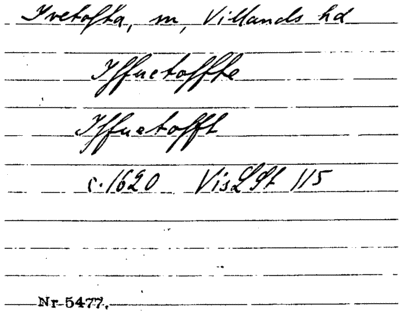 Ivetofta, sn, Villands hd
Iffuetoffte
Iffuetofft
c. 1620 VisLSt 115
Nr 5477.